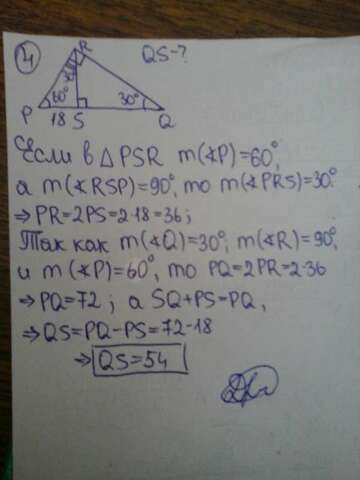 4
QS-?
R
60°
30°
P 18 S Q
Если в △PSR m(∢P)=60°,
а m(∢RSP)=90°, то m(∢PRS)=30°
⇒ PR=2PS=2·18=36;
Так как m(∢Q)=30°; m(∢R)=90°,
и m(∢P)=60°, то PQ=2PR=2·36
⇒ PQ=72; а SQ+PS=PQ,
⇒ QS=PQ-PS=72-18
⇒ QS=54